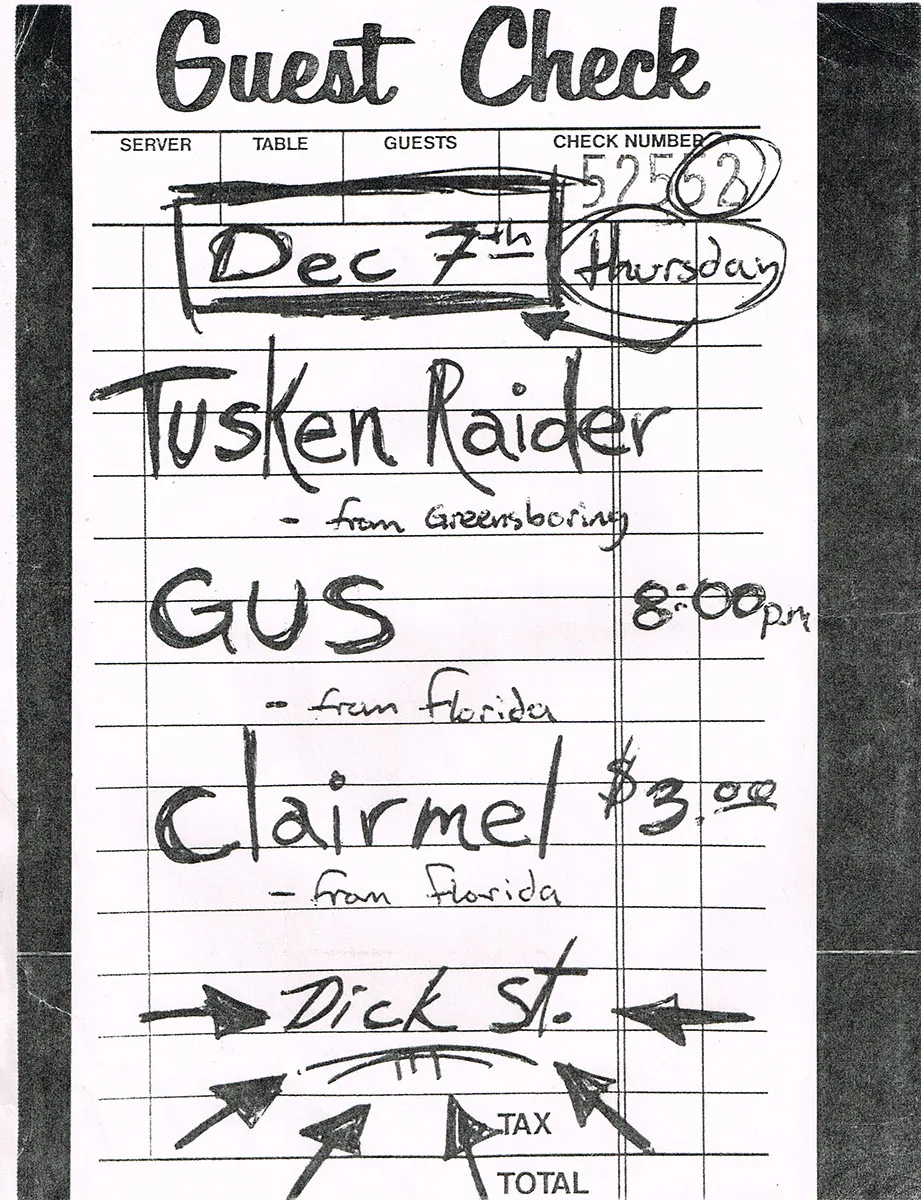 Guest Check
SERVER TABLE GUESTS CHECK NUMBER
52552
Dec 7th Thursday
Tusken Raider
- from Greensboring
GUS 8:00pm
-- from Florida
Clairmel $3.00
- from Florida
Dick St.
TAX
TOTAL